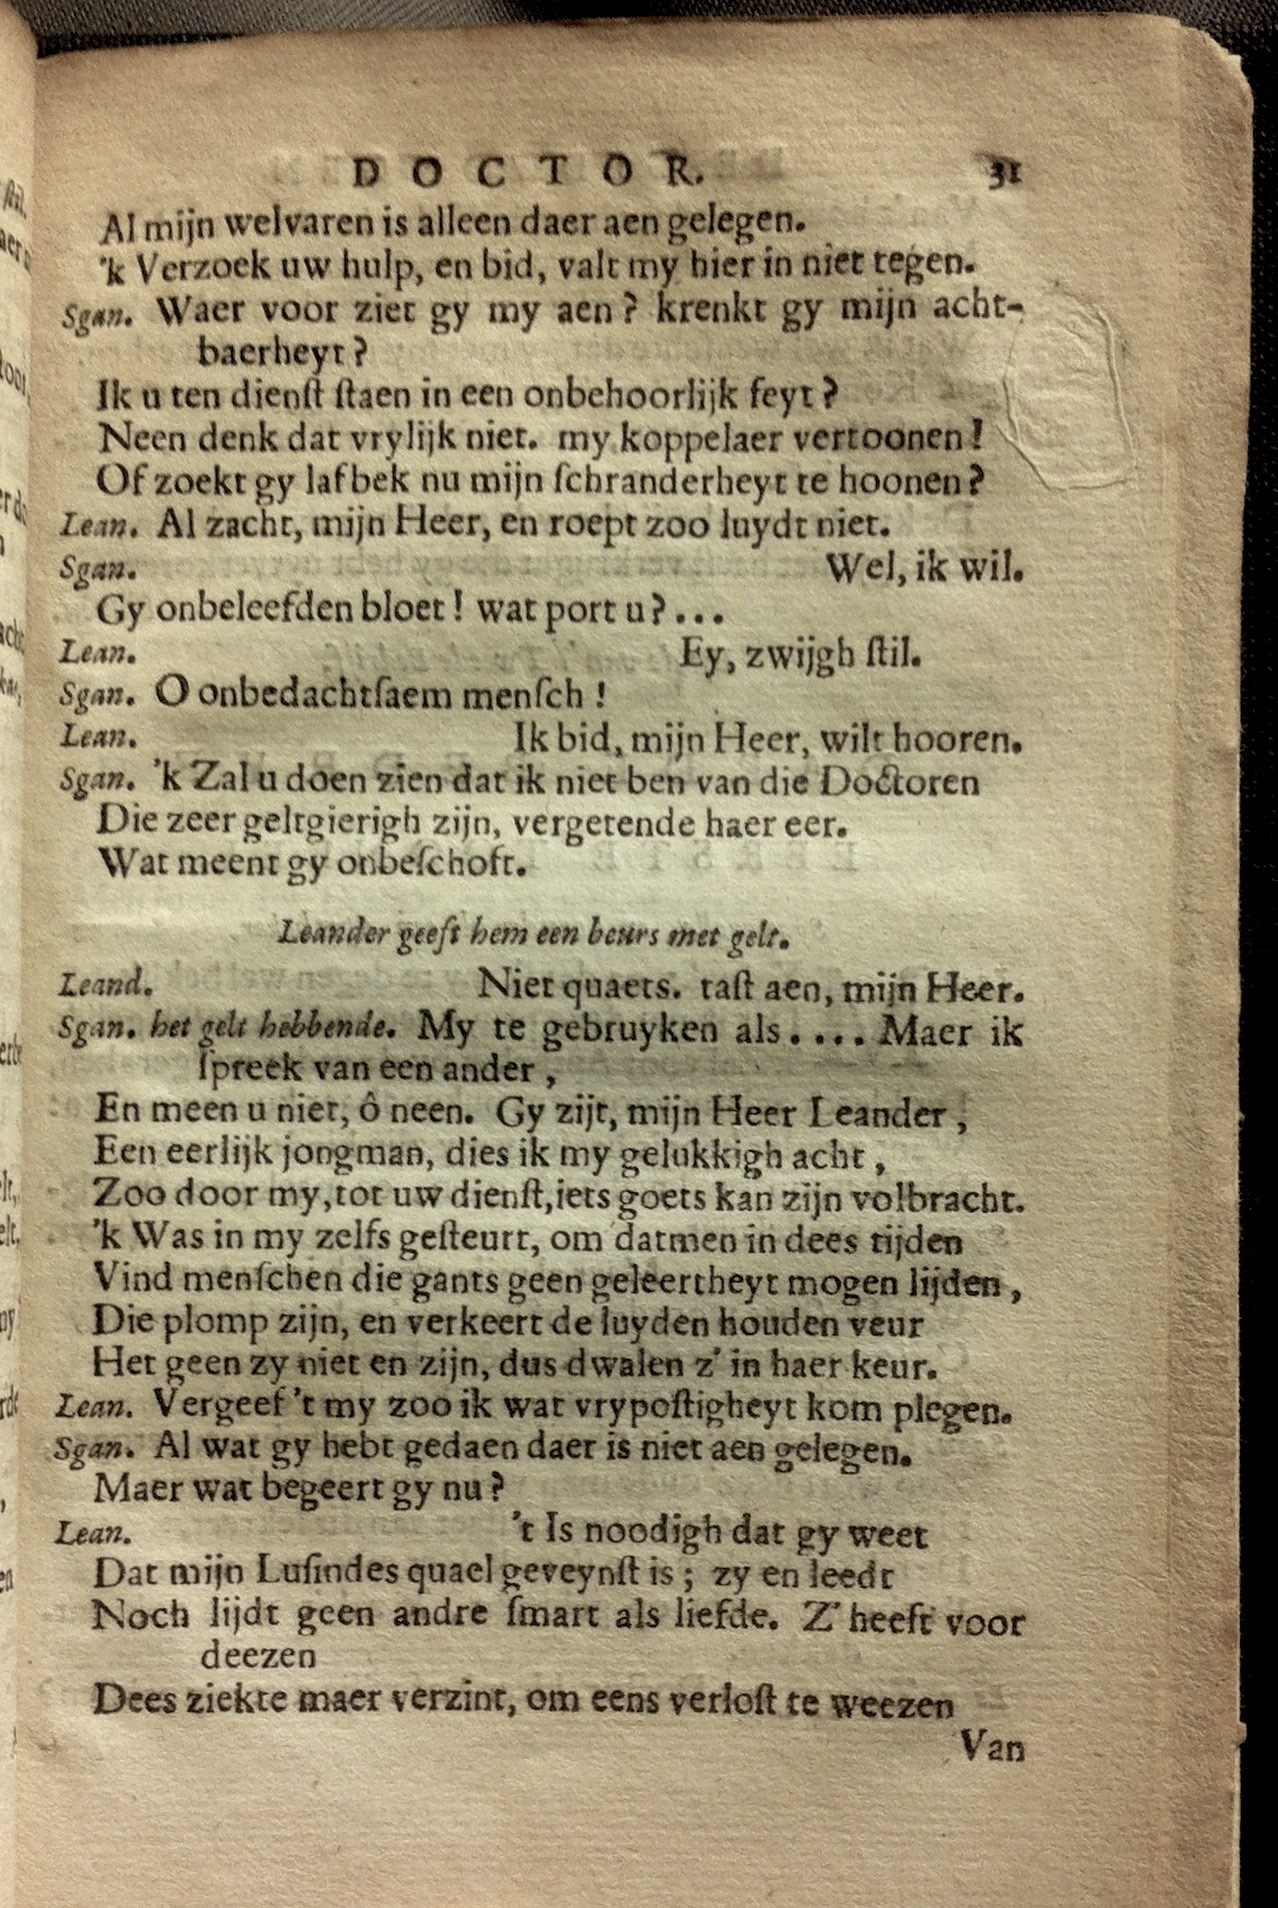 DOCTOR. 31
Al mijn welvaren is alleen daer aen gelegen.
'k Verzoek uw hulp, en bid, valt my hier in niet tegen.
Sgan. Waer voor ziet gy my aen? krenkt gy mijn acht-
baerheyt?
Ik u ten dienſt ſtaen in een onbehoorlijk feyt?
Neen denk dat vrylijk niet. my koppelaer vertoonen!
Of zoekt gy lafbek nu mijn ſchranderheyt te hoonen?
Lean. Al zacht, mijn Heer, en roept zoo luydt niet.
Sgan. Wel, ik wil.
Gy onbeleefden bloet! wat port u?...
Lean. Ey, zwijgh ſtil.
Sgan. O onbedachtſaem menſch!
Lean. Ik bid, mijn Heer, wilt hooren.
Sgan. 'k Zal u doen zien dat ik niet ben van die Doctoren
Die zeer geltgierigh zijn, vergetende haer eer.
Wat meent gy onbeſchoft.
Leander geeft hem een beurs met gelt.
Leand. Niet quaets. taſt aen, mijn Heer.
Sgan. het gelt hebbende. My te gebruyken als.... Maer ik
ſpreek van een ander,
En meen u niet, ô neen. Gy zijt, mijn Heer Leander,
Een eerlijk jongman, dies ik my gelukkigh acht,
Zoo door my, tot uw dienſt, iets goets kan zijn volbracht.
'k Was in my zelfs geſteurt, om datmen in dees tijden
Vind menſchen die gants geen geleertheyt mogen lijden,
Die plomp zijn, en verkeert de luyden houden veur
Het geen zy niet en zijn, dus dwalen z' in haer keur.
Lean. Vergeef 't my zoo ik wat vrypoſtigheyt kom plegen.
Sgan. Al wat gy hebt gedaen daer is niet aen gelegen.
Maer wat begeert gy nu?
Lean. 't Is noodigh dat gy weet
Dat mijn Luſindes quael geveynſt is; zy en leedt
Noch lijdt geen andre ſmart als liefde. Z' heeft voor
deezen
Dees ziekte maer verzint, om eens verloſt te weezen
Van